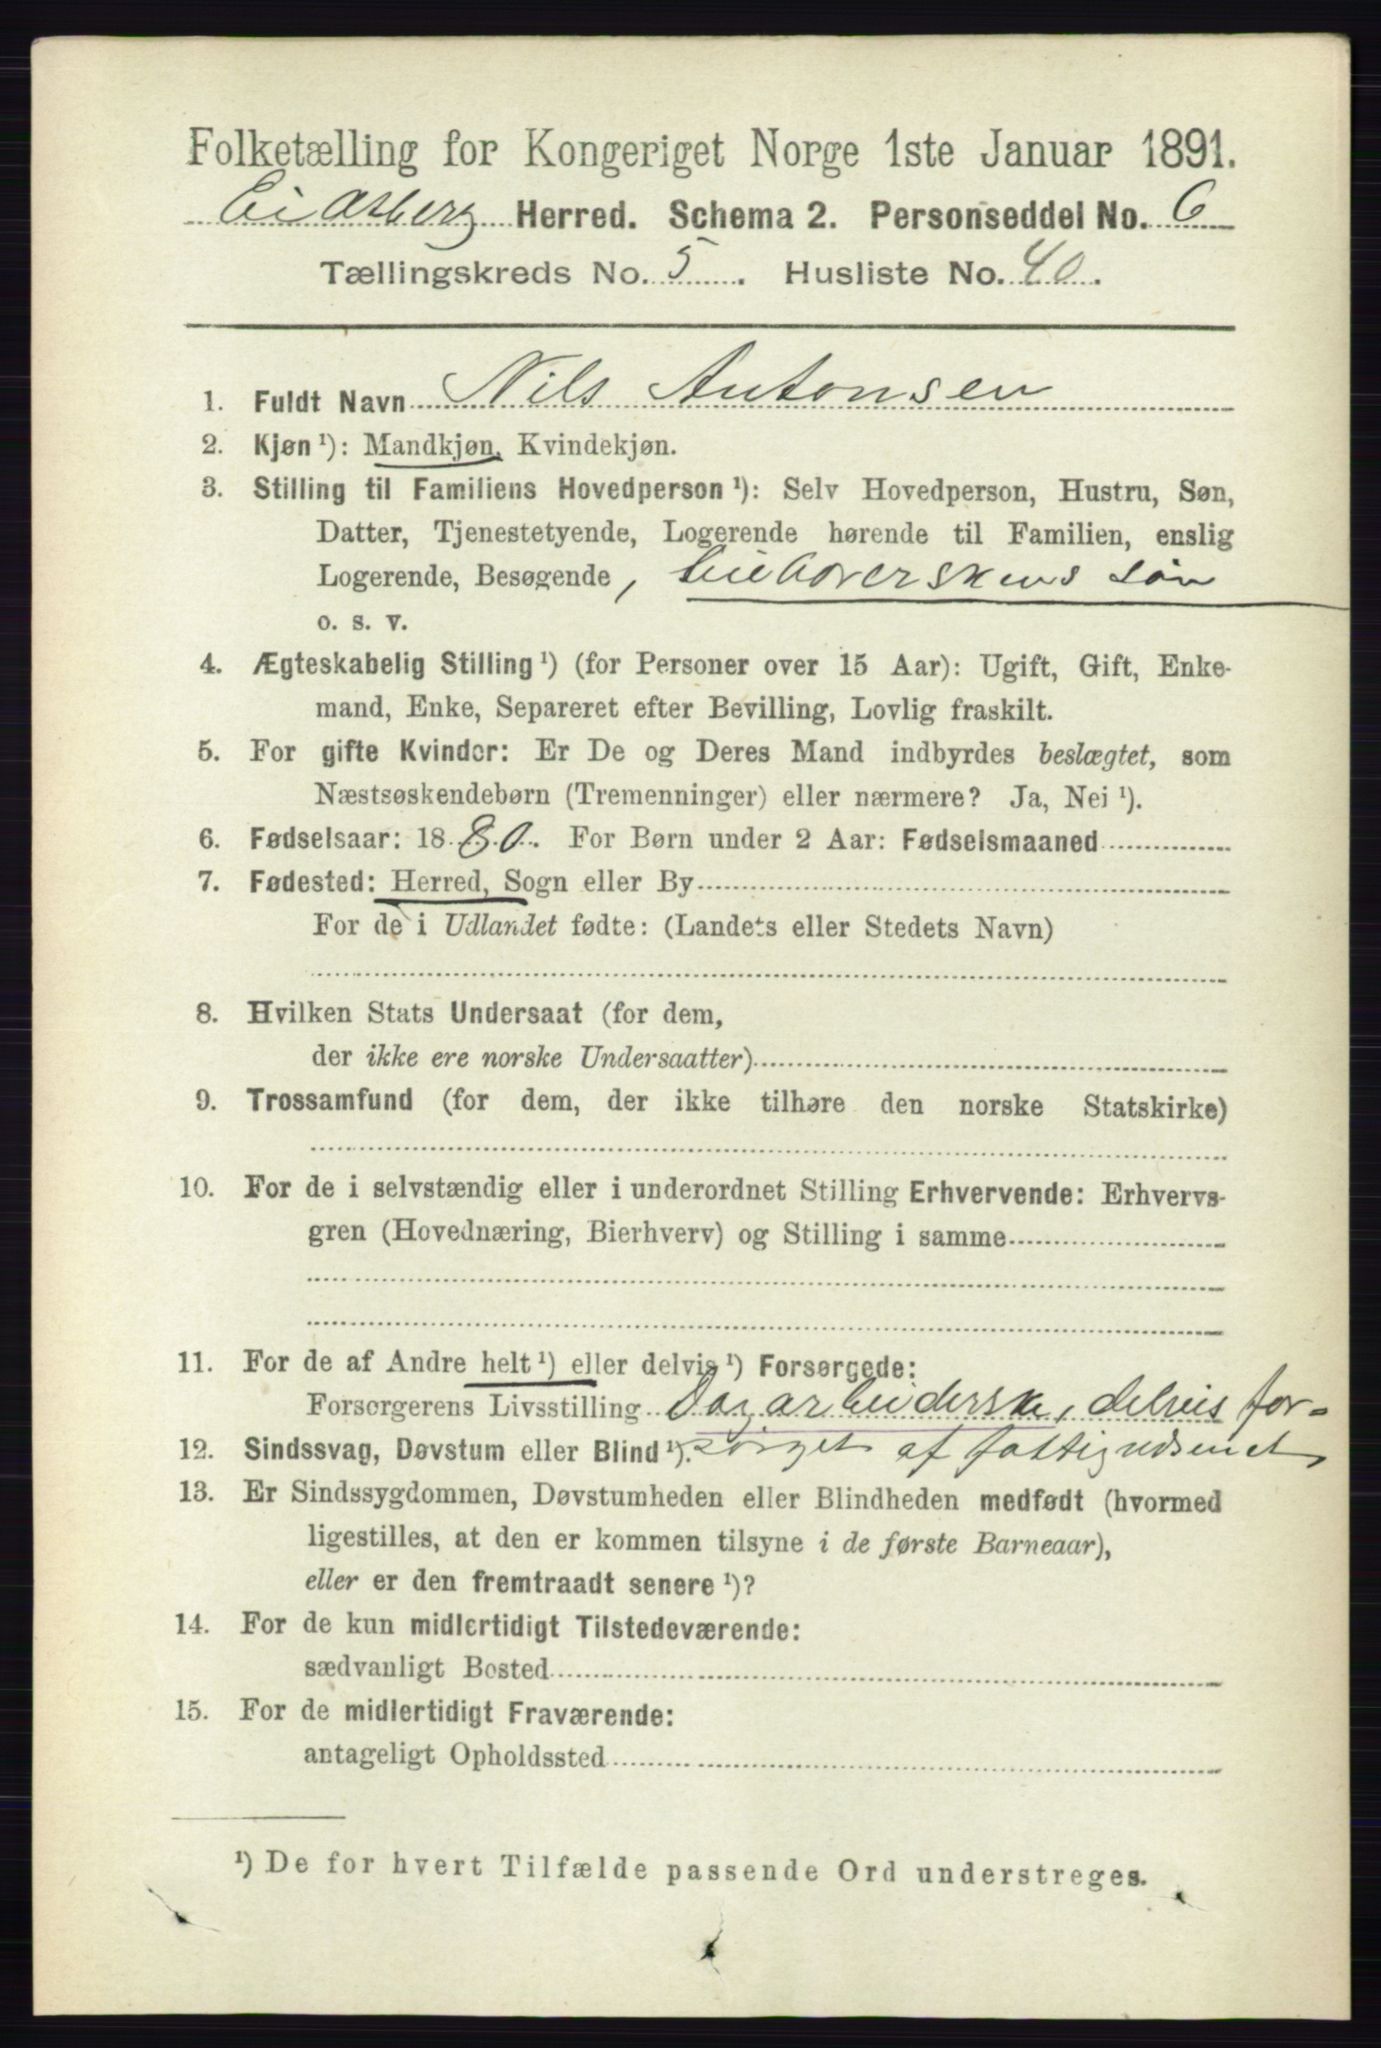 Folketælling for Kongeriget Norge 1ste Januar 1891.
Eidsberg Herred. Schema 2. Personseddel No. 6
Tællingskreds No. 5. Husliste No. 40.
1. Fuldt Navn Nils Antonsen
2. Kjøn ¹): Mandkjøn, Kvindekjøn.
3. Stilling til Familiens Hovedperson ¹): Selv Hovedperson, Hustru, Søn,
Datter, Tjenestetyende, Logerende hørende til Familien, enslig
Logerende, Besøgende, Leieboerskens søn
o. s. v.
4. Ægteskabelig Stilling ¹) (for Personer over 15 Aar): Ugift, Gift, Enke-
mand, Enke, Separeret efter Bevilling, Lovlig fraskilt.
5. For gifte Kvinder: Er De og Deres Mand indbyrdes beslægtet, som
Næstsøskendebørn (Tremenninger) eller nærmere? Ja, Nei ¹).
6. Fødselsaar: 1880. For Børn under 2 Aar: Fødselsmaaned
7. Fødested: Herred, Sogn eller By
For de i Udlandet fødte: (Landets eller Stedets Navn)
8. Hvilken Stats Undersaat (for dem,
der ikke ere norske Undersaatter)
9. Trossamfund (for dem, der ikke tilhøre den norske Statskirke)
10. For de i selvstændig eller i underordnet Stilling Erhvervende: Erhvervs-
gren (Hovednæring, Bierhverv) og Stilling i samme
11. For de af Andre helt ¹) eller delvis ¹) Forsørgede:
Forsørgerens Livsstilling Dagarbeiderske, delvis for-
12. Sindssvag, Døvstum eller Blind ¹). sørget af fattigvæsenet
13. Er Sindssygdommen, Døvstumheden eller Blindheden medfødt (hvormed
ligestilles, at den er kommen tilsyne i de første Barneaar),
eller er den fremtraadt senere ¹)?
14. For de kun midlertidigt Tilstedeværende:
sædvanligt Bosted
15. For de midlertidigt Fraværende:
antageligt Opholdssted
¹) De for hvert Tilfælde passende Ord understreges.